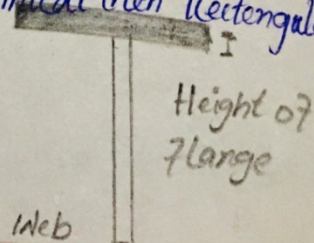 than Rectangul
I
Height of
Flange
Web